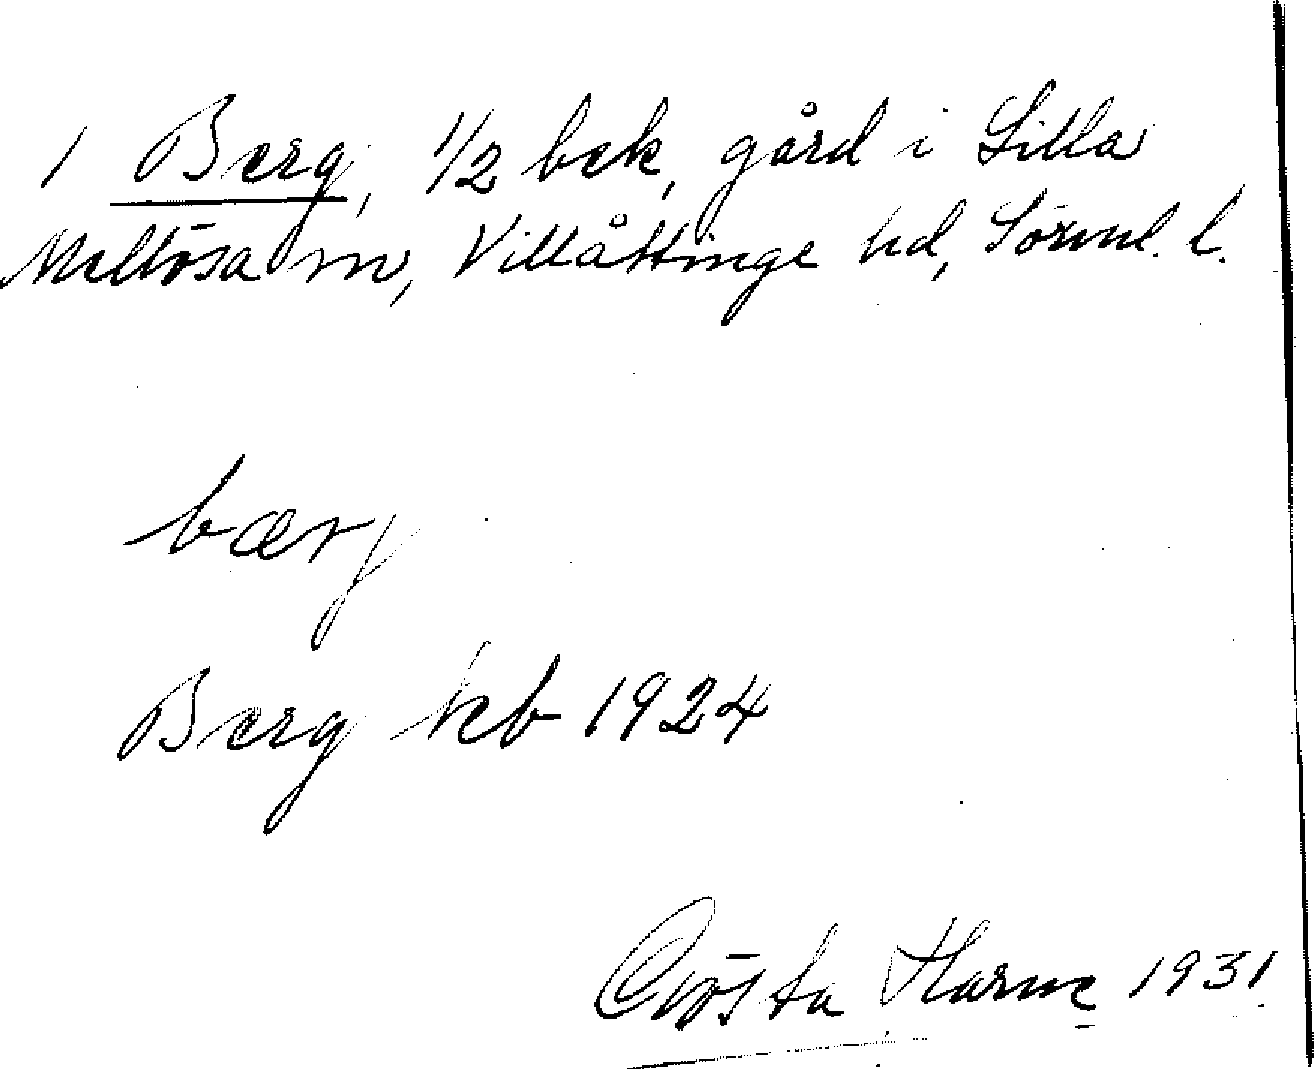 1 Berg, 1/2 bck, gård i Lilla
Mellösa sn, Villåttinge hd, Sörml. l.
bærj
Berg kb 1924
Gösta Harne 1931